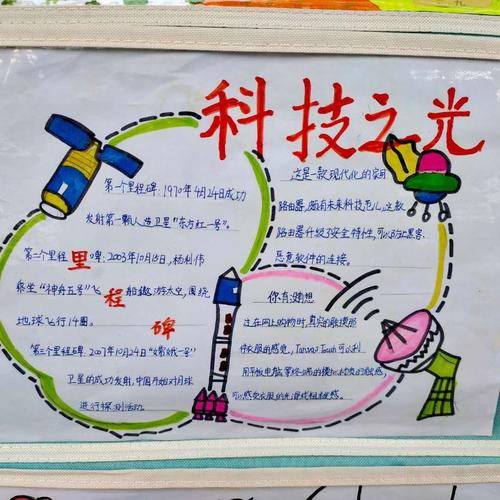 科技之光
第一个里程碑：1970年4月24日成功
发射第一颗人造卫星"东方红一号"。
第二个里程碑：2003年10月15日，杨利伟
乘坐"神舟五号"飞船遨游太空，围绕
地球飞行14圈。
第三个里程碑：2007年10月24日"嫦娥一号"
卫星的成功发射，中国开始对月球
进行探测活动
里
程
碑
这是一款现代化的家用
路由器，颇有未来科技范儿，这款
路由器升级了安全特性，可以防止黑客、
恶意软件的连接。
你有没有想
过在网上购物时，真实的触摸那
件衣服的感觉，Tanvas Touch可以利
用平板电脑
可以感觉衣服的光滑或粗糙感。